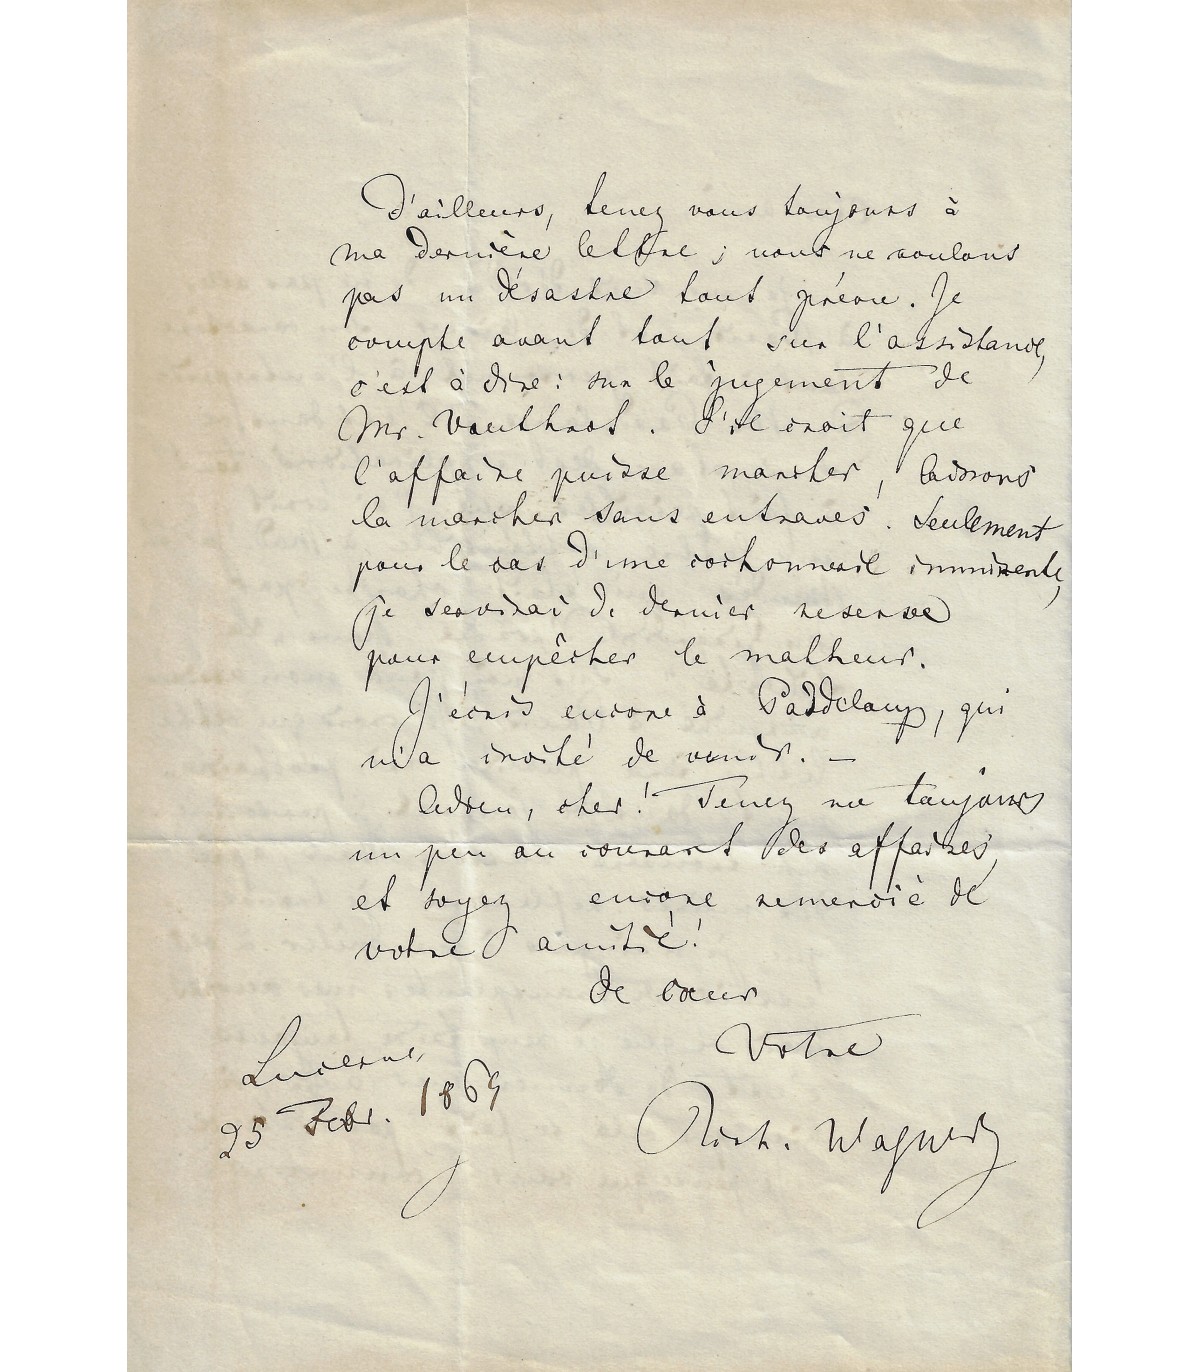 D'ailleurs, tenez vous toujours à
ma dernière lettre ; nous ne voulons
pas un désastre tout prévu. Je
compte avant tout sur l'assistance,
c'est à dire : sur le jugement de
Mr. Vauthrot. S'il croit que
l'affaire puisse marcher, laissons
la marcher sans entraves. Seulement
pour le cas d'une cochonnerie imminente,
je servirai de dernier reserve
pour empêcher le malheur.
J'écris encore à Pasdeloup, qui
m'a invité de venir. —
Adieu, cher! Tenez me toujours
un peu au courant des affaires,
et soyez encore remercié de
votre amitié!
de cœur
Votre
Rich. Wagner
Lucerne,
25 Febr. 1869